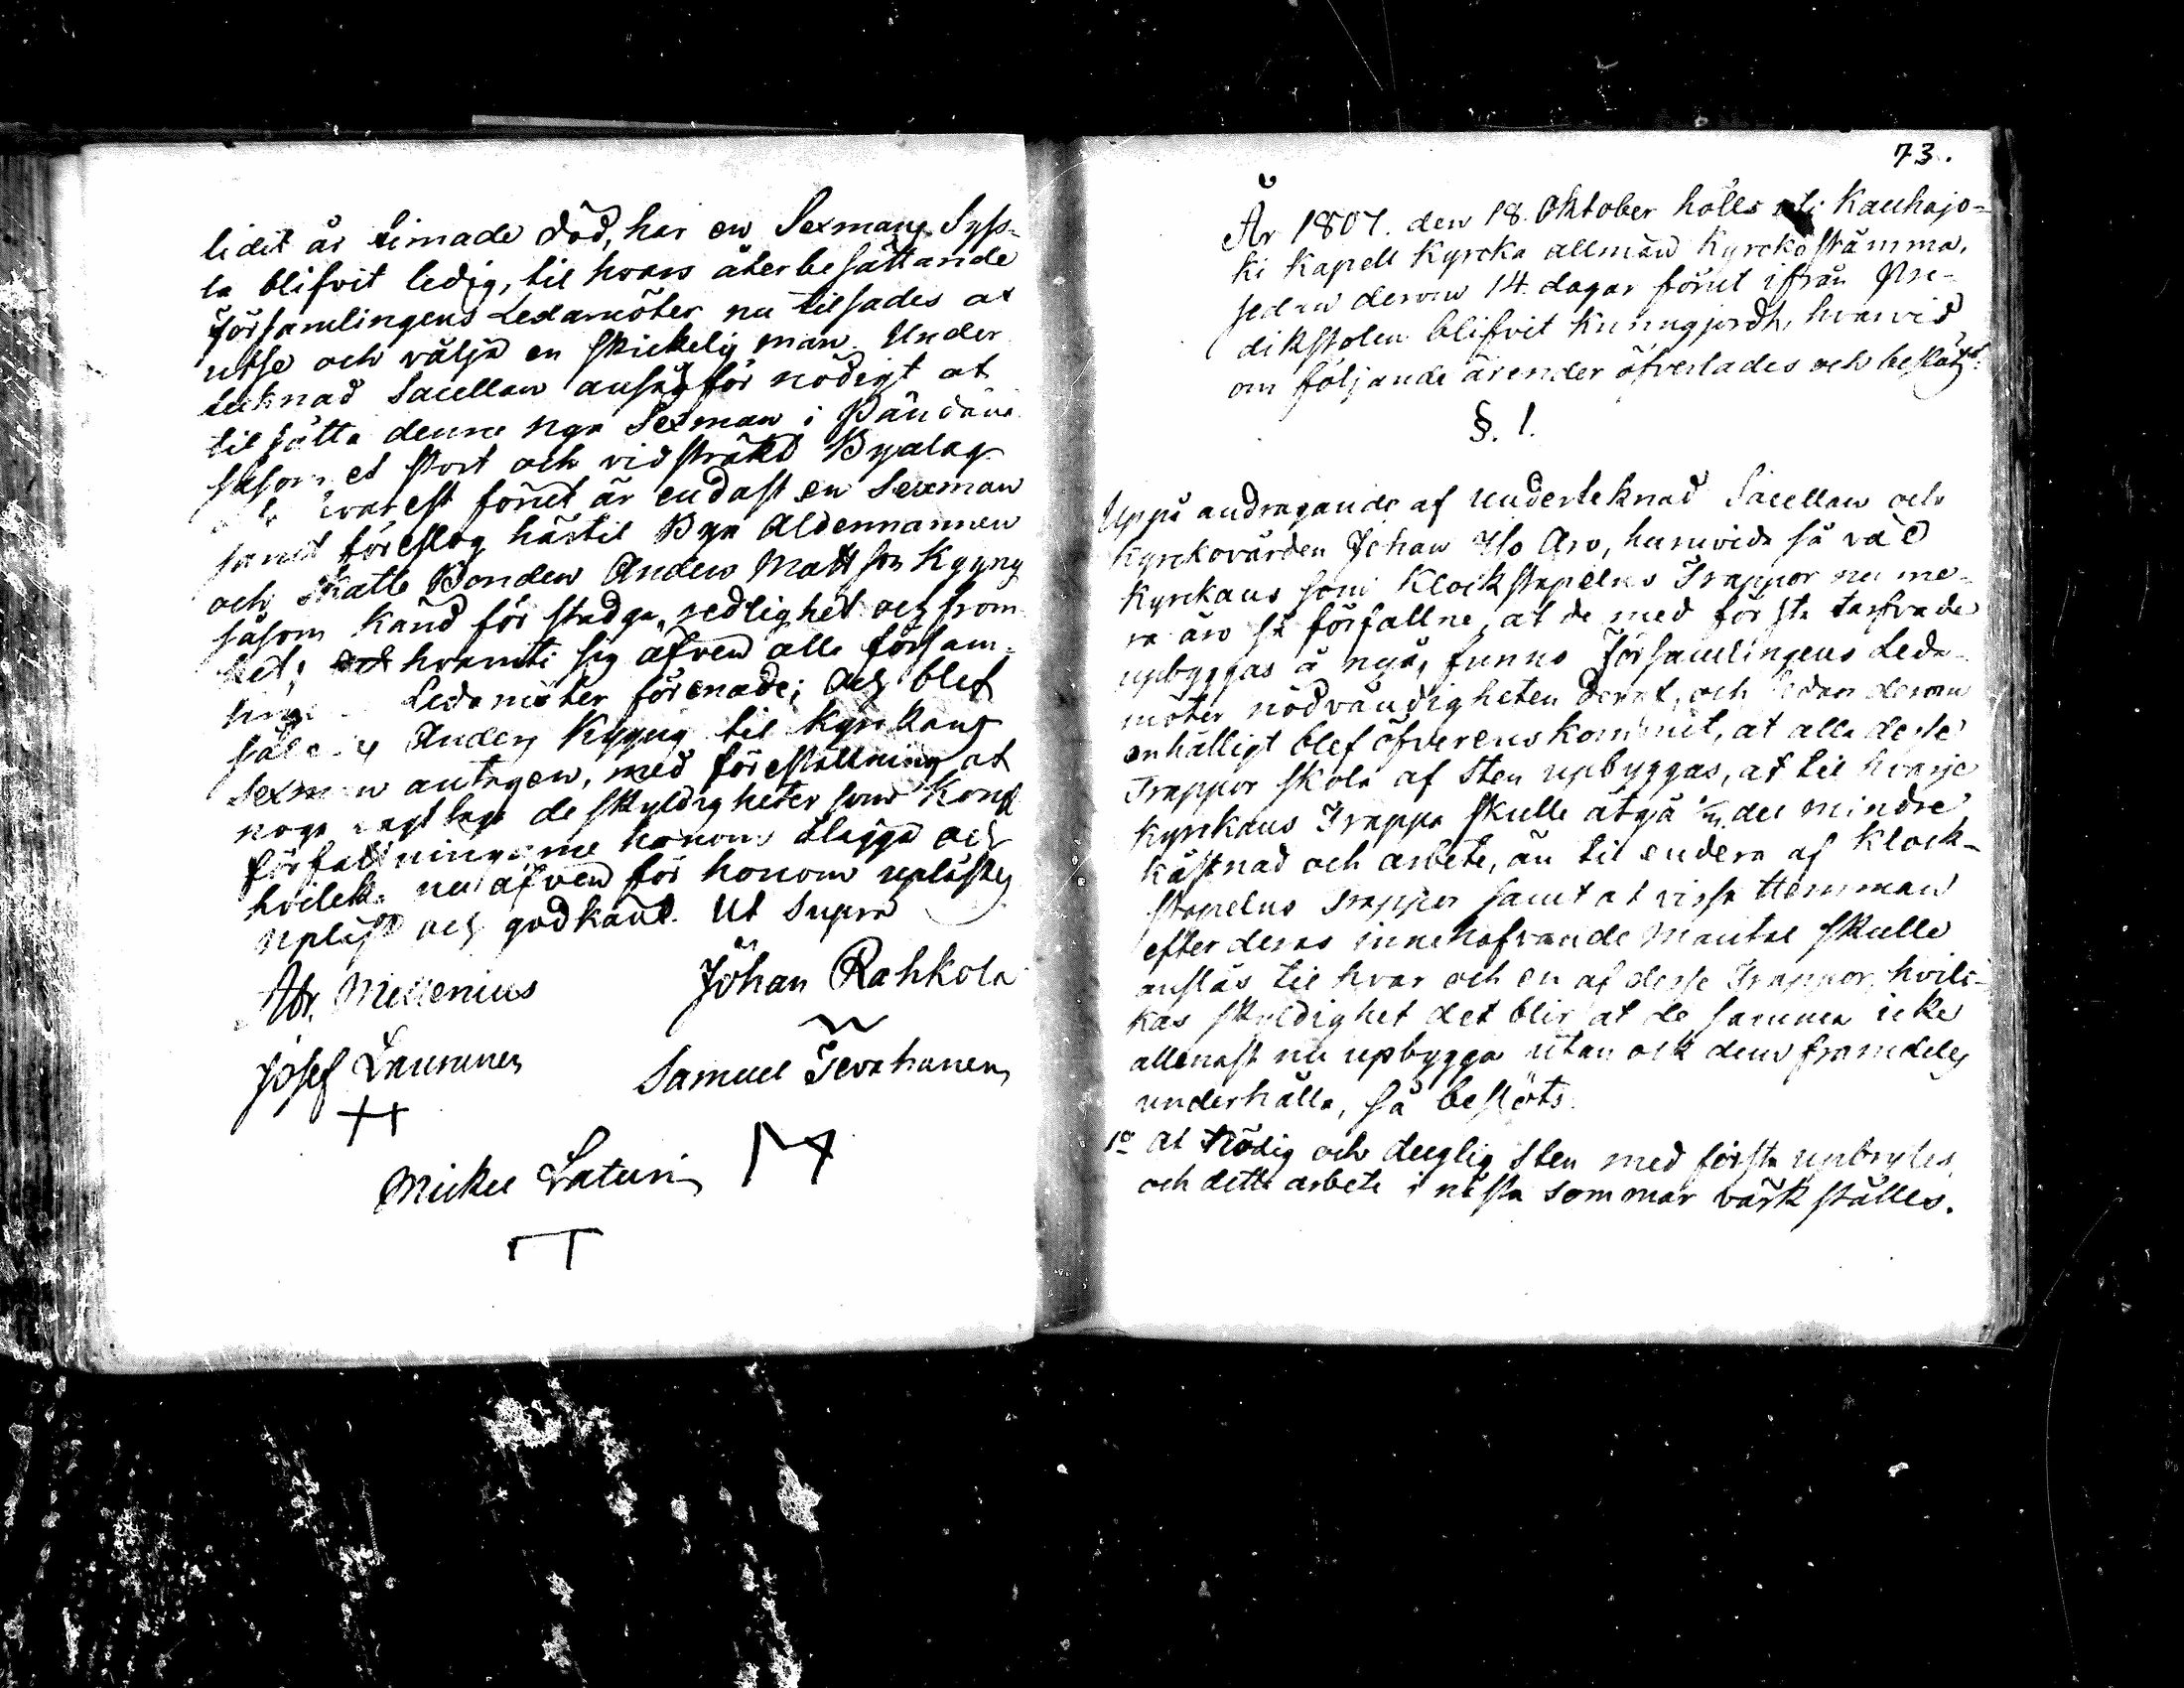 lidit år timade död, har en Sexmans Syss-
la blifvit ledig, til hvars återbesättande
Församlingens Ledamöter nu tilsades at
utse och välja en skickelig man. Under
teknad Sacellan ansåg för nödigt at
tilsätta denne nya Sexman i Päntäne
såsom et stort och vidsträkt Byalag
warest förut är endast en Sexman
samt föreslog härtil Bya Åldermannen
och Skatte Bonden Anders Mattson Kyyny
såsom känd för stadga, redlighet och from
het; hvarmti sig äfven alla försam-
Ledamöter förenade; och blef
Anders Kyyny til Kyrckans
Sexman antagen, med föreställning at
noga de skyldigheter som Kongl
författningarne honom ålagga och
hvilcka nu äfven för honom uplästes
Upläst och godkänt. Ut Supra
Abr. Mellenius Johan Rahkola
Josef Laurunen Samuel Tevahanen
Mickel Laturi
73.
År 1807. den 18. Oktober hölls uti Kauhajo-
ki Kapell Kyrcka allmän Kyrckostämma,
sedan derom 14 dagar förut ifrån Pre-
dikstolen blifvit kunngjordt, hvarvid
om följande ärender öfverlades och beslöts:
§. 1.
Uppå andragande af underteknad Sacellan och
Kyrckovärden Johan Iso Aro, huruvida så väl
Kyrckans som Klockstapelns Trappor nu me-
ra äro så förfallne, at de med första tarfvade
upbyggas å nyo, funno Församlingens Leda-
möter nödvändigheten deraf, och sedan derom
enhälligt blef öfverenskommit, at alla desse
Trappor skola af Sten upbyggas, at til hvarje
Kyrckans Trappa skulle åtgå del mindre
kåstnad och arbete, än til endera af Klock-
stapelns Trappor samt at vissa Hemman
efter deras innehafvande Mantal skulle
anslås til hvar och en af desse Trappor, hvilc-
kas skyldighet det blir at de samma icke
allenast nu upbygga utan ock dem framdeles
underhålla, så beslöts.
1o at Nödig och duglig Sten med första upbrytes
och detta arbete i nästa sommar värkställes.